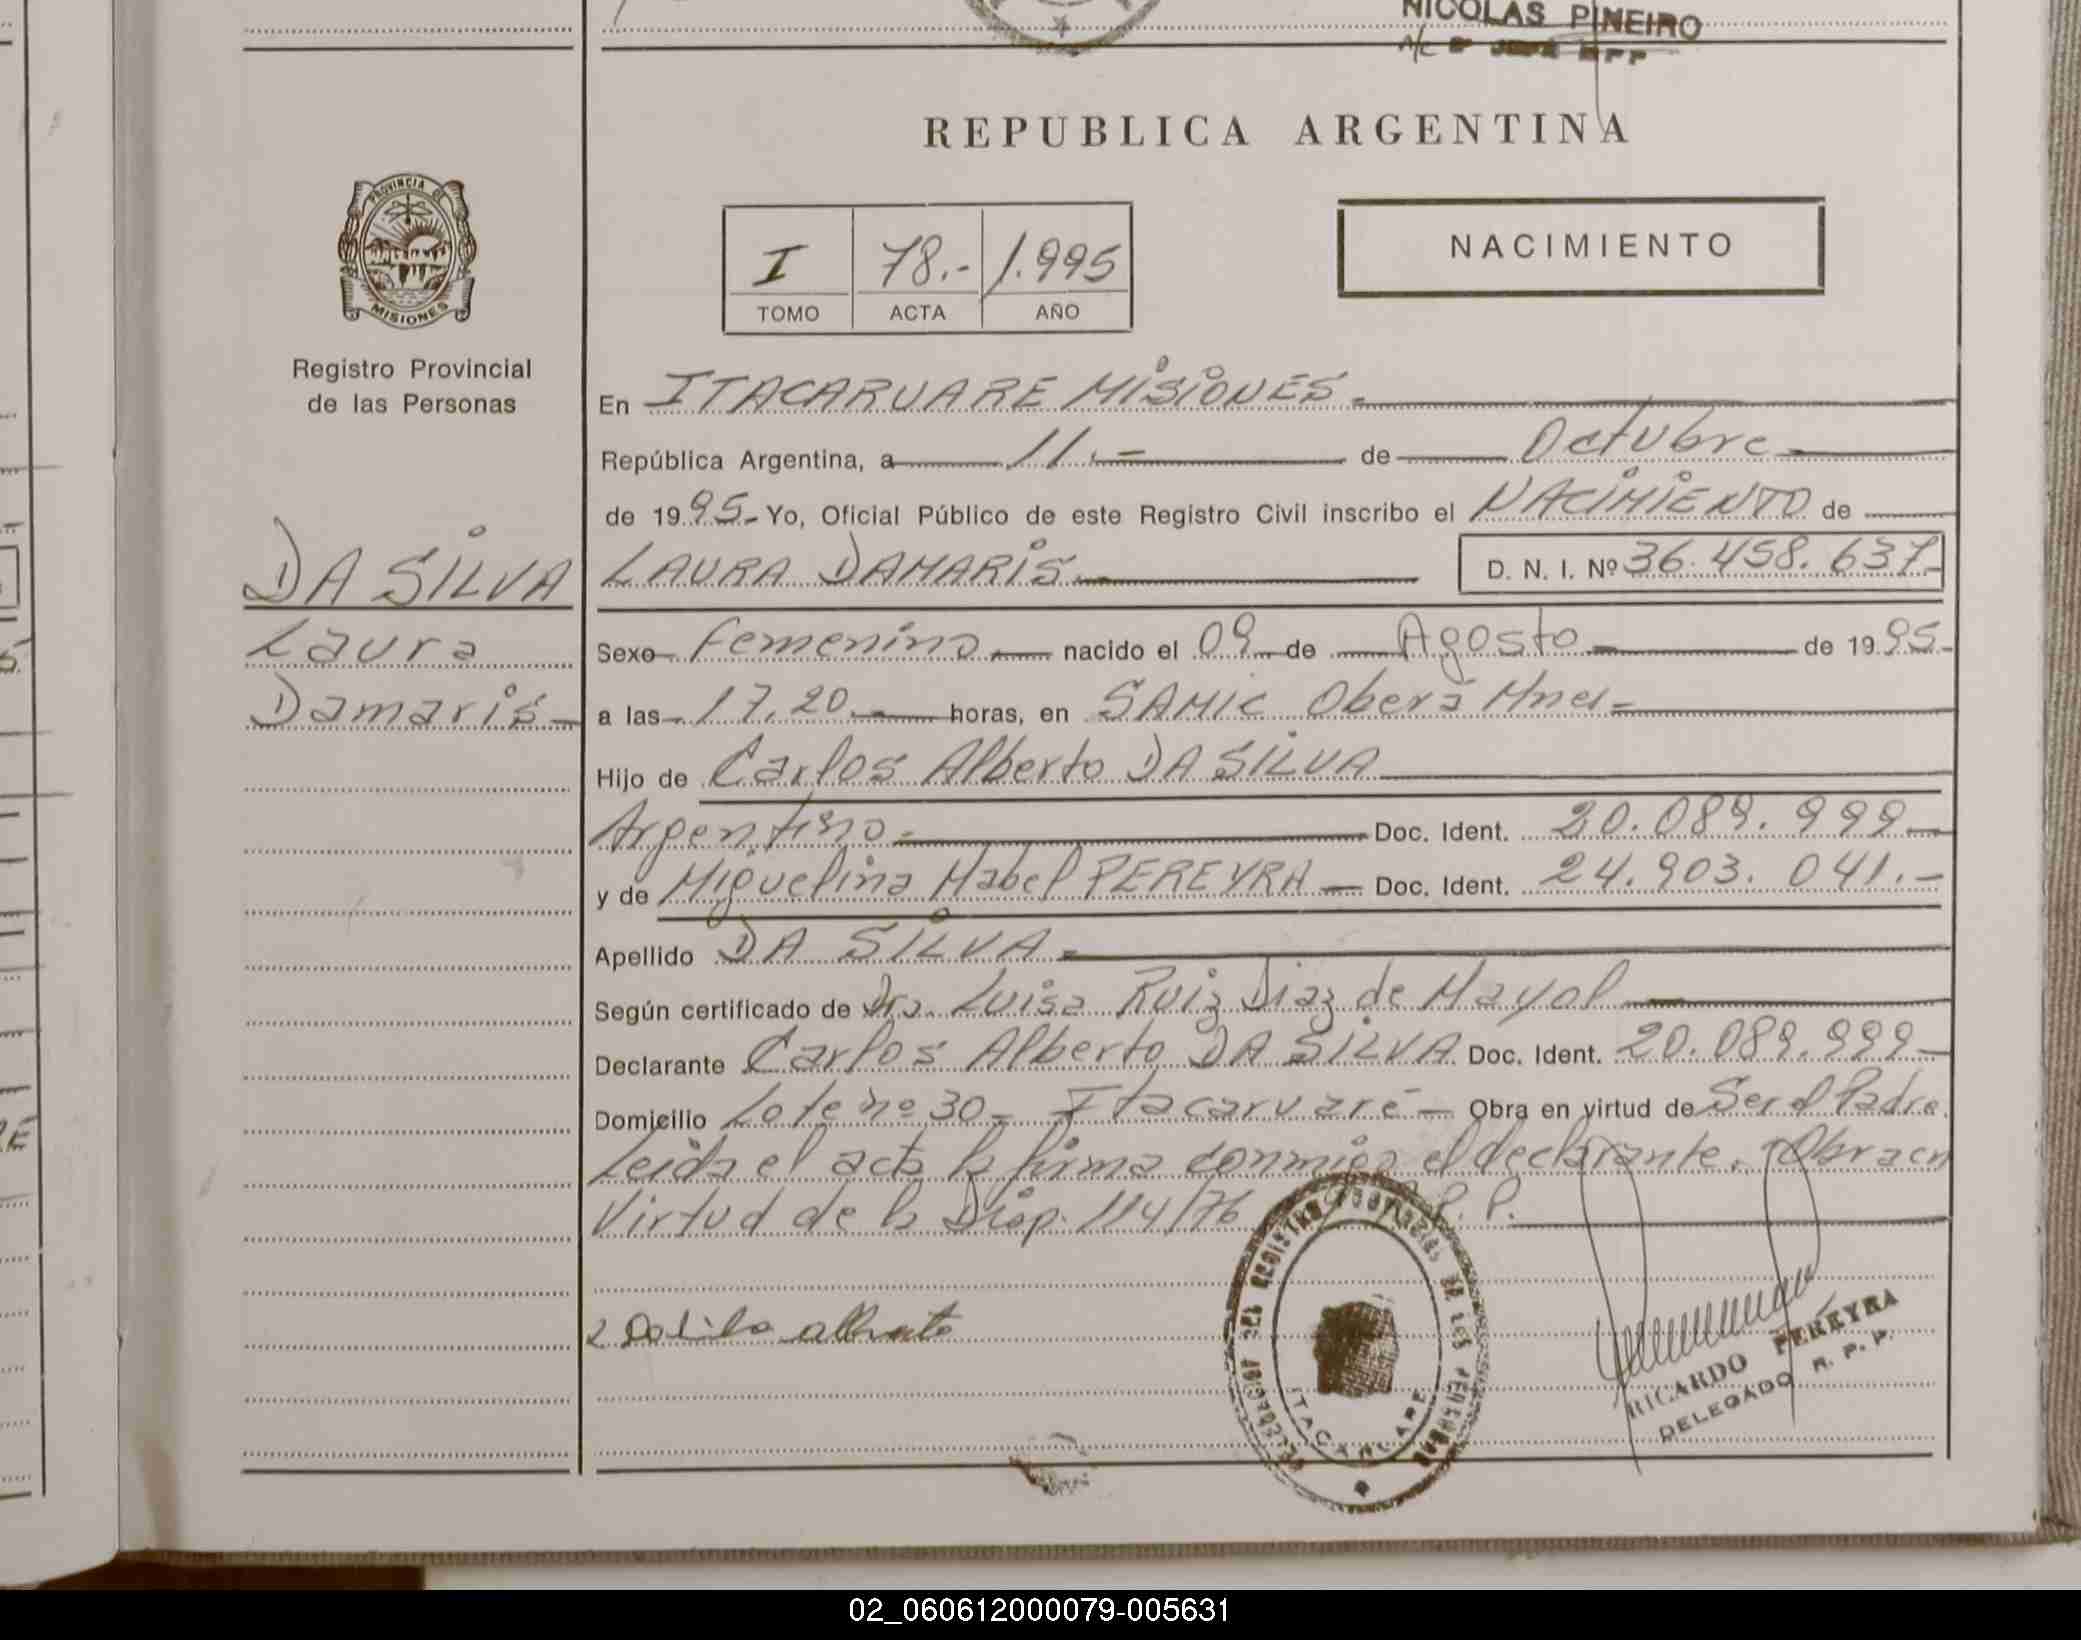 NICOLAS PINEIRO
REPUBLICA ARGENTINA
PROVINCIA DE
MISIONES
Registro Provincial
de las Personas
I 78.- 1.995
TOMO ACTA AÑO
NACIMIENTO
En ITACARUARE MISIONES.-
República Argentina, a 11.- de Octubre
de 1995.- Yo, Oficial Público de este Registro Civil inscribo el NACIMIENTO de
DA SILVA
LAURA DAMARIS. D. N. I. Nº 36.458.637.-
Laura
Damaris-
Sexo Femenino nacido el 09 de Agosto de 1995.-
a las 17,20 horas, en SAMIC Oberá Mnes-
Hijo de Carlos Alberto DA SILVA
Argentino.- Doc. Ident. 20.089.999-
y de Miguelina Mabel PEREYRA - Doc. Ident. 24.903.041.-
Apellido DA SILVA.-
Según certificado de Dra. Luisa Ruiz Diaz de Mayol
Declarante Carlos Alberto DA SILVA Doc. Ident. 20.089.999-
Domicilio Lote nº 30- Itacaruaré- Obra en virtud de Ser el Padre.
Leida el acta la firma conmigo el declarante. Obra en
Virtud de la Disp. 114/76 P.P.
ITACARUARE
RICARDO PEREYRA
DELEGADO R. P. P.
02_060612000079-005631